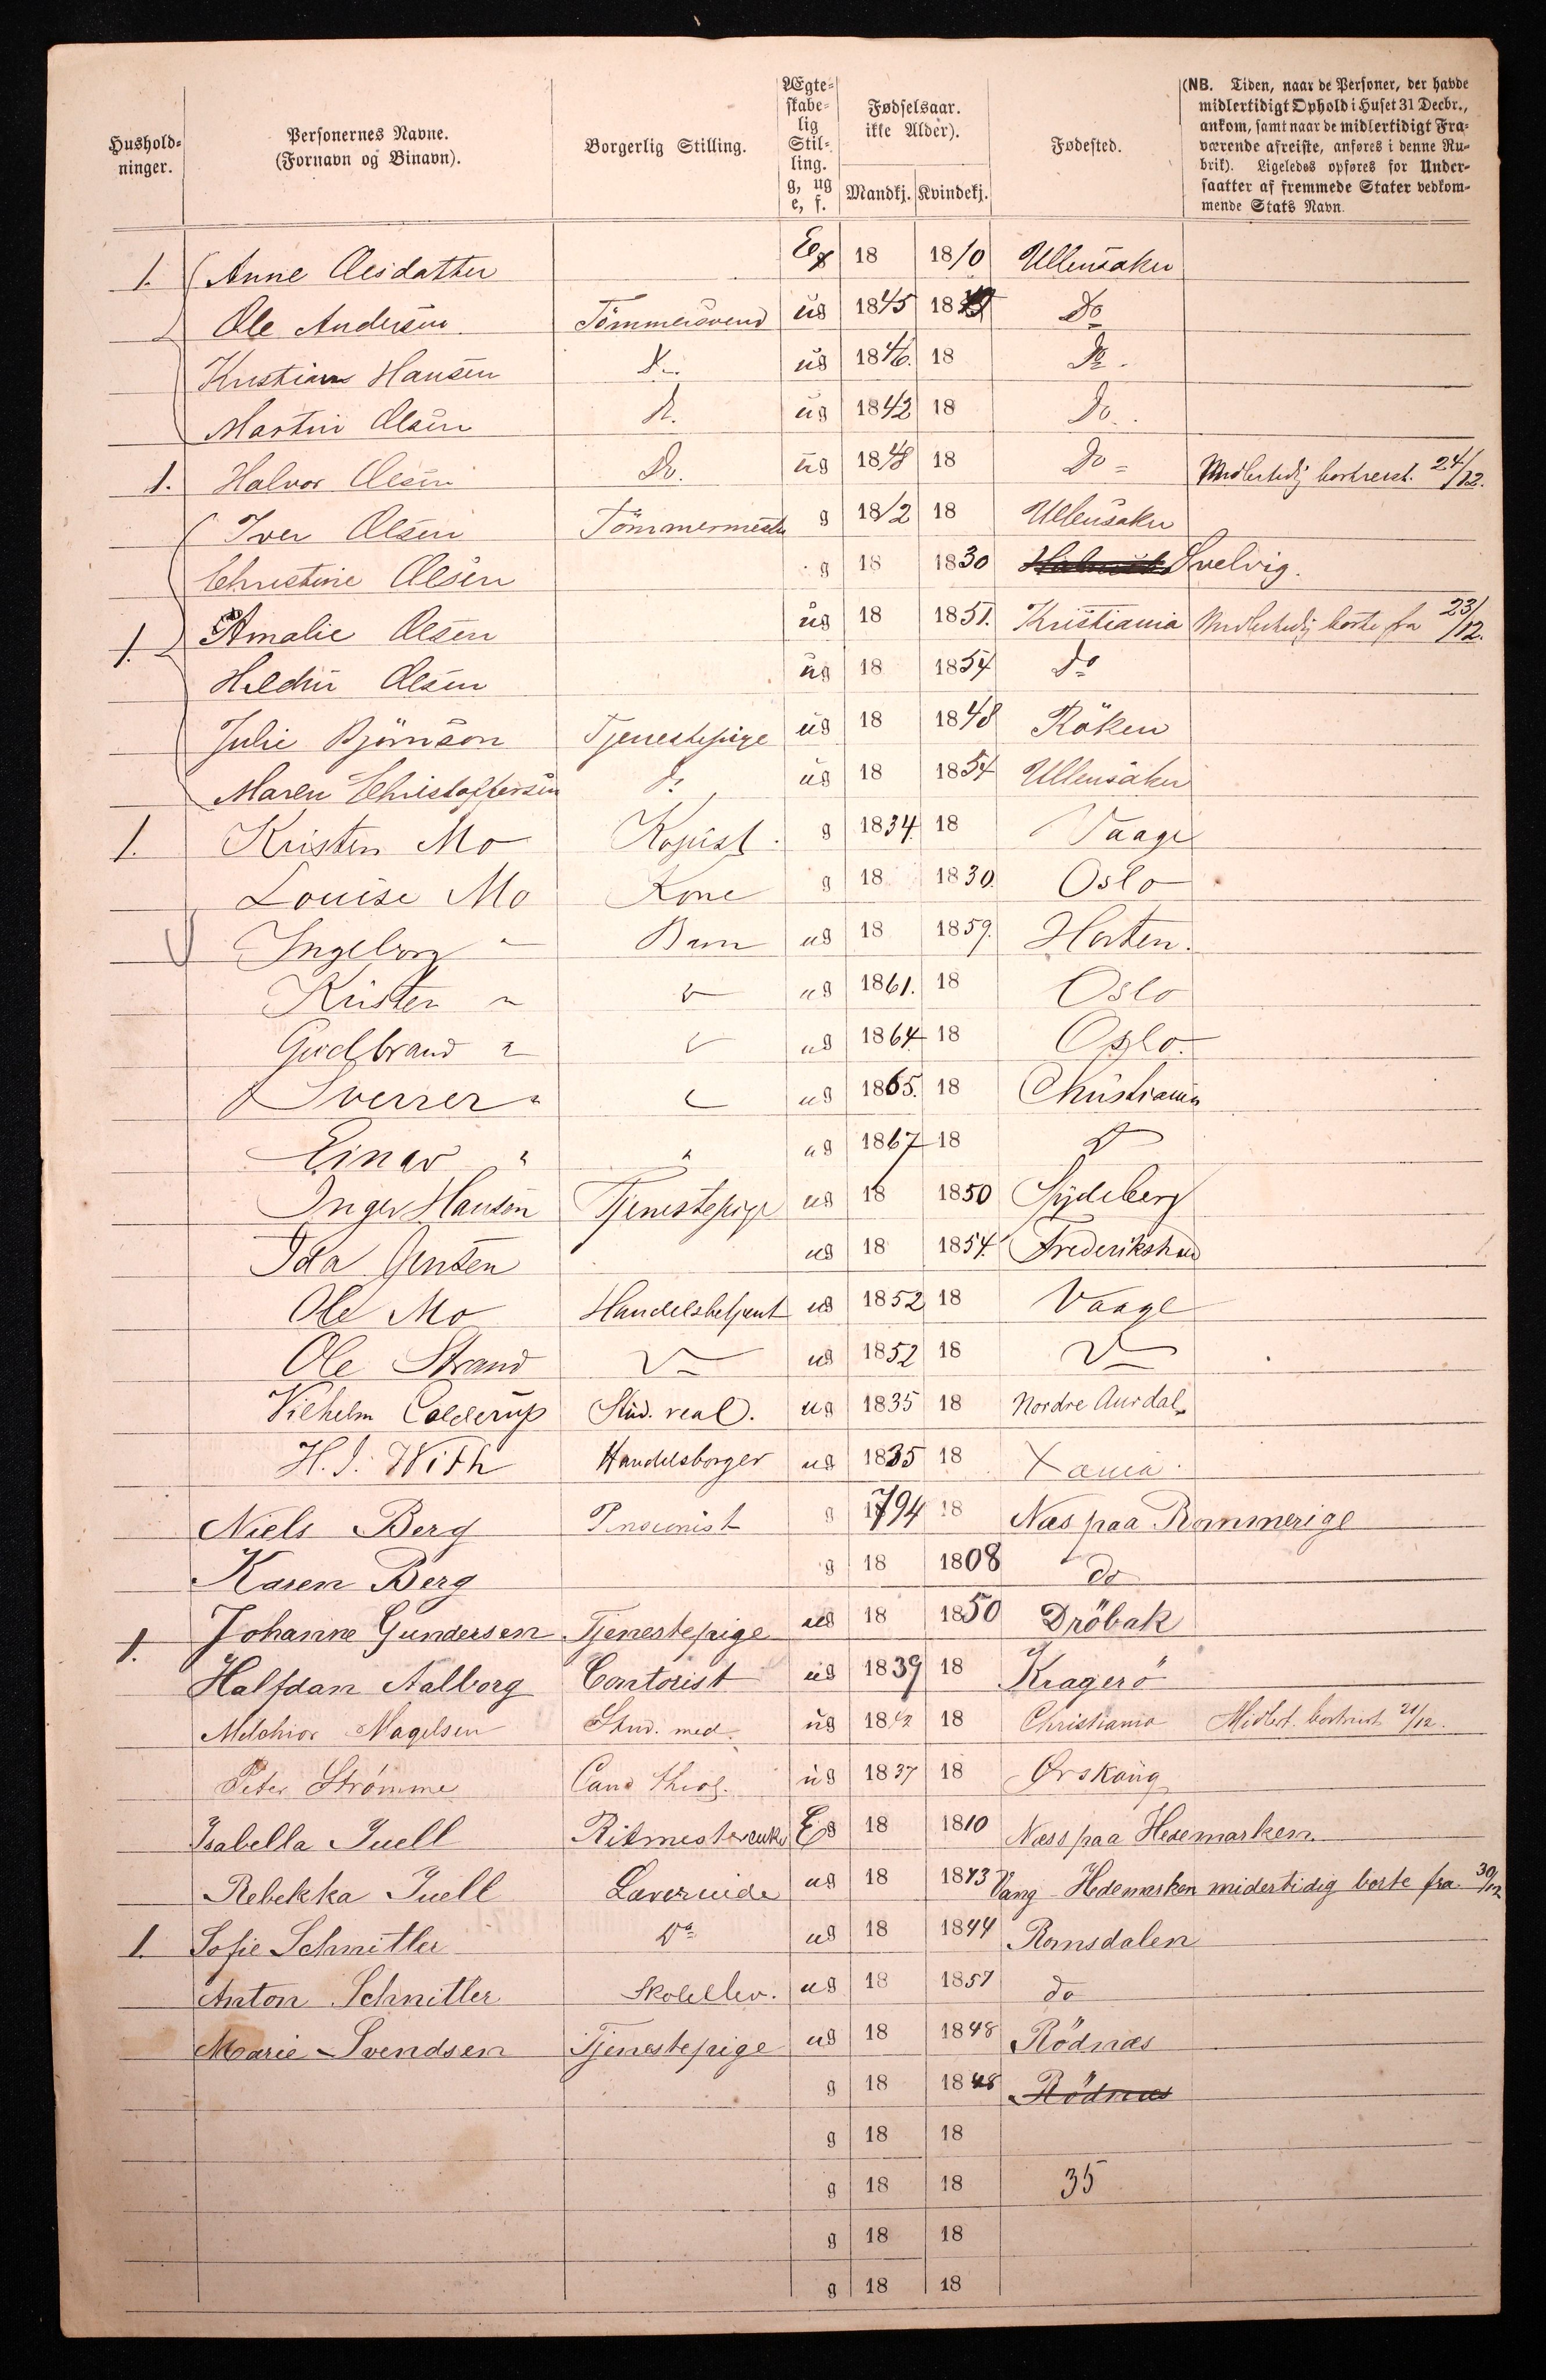 Hushold-ninger. Personernes Navne. (Fornavn og Binavn). Borgerlig Stilling. Ægte-skabe-lig Stil-ling. g, ug e, f. Fødselsaar. ikke Alder). Mandkj. Kvindekj. Fødested.
(NB. Tiden, naar de Personer, der havde
midlertidigt Ophold i Huset 31 Decbr.,
ankom, samt naar de midlertidigt Fra-
værende afreiste, anføres i denne Ru-
brik). Ligeledes opføres for Under-
saatter af fremmede Stater vedkom-
mende Stats Navn.
1. Anne Olesdatter Eg 18 1810 Ullensaker
Ole Andersen Tömmersvend ug 1845 18 Do
Kristian Hansen Do ug 1846. 18 Do.
Martin Olsen Do. ug 1842 18 Do.
1. Halvor Olsen Do. ug 1848 18 Do Midlertidij bortreist. 24/12.
Iver Olsen Tömmermester g 1812 18 Ullensaker
Christine Olsen g 18 1830 Svelvig.
1. Amalie Olsen ug 18 1851. Kristiania Midlertidij borte fra 23/12.
Helene Olsen ug 18 1854 Do
Julie Bjömson Tjenestepige ug 18 1848 Röken
Maren Christoffersen Do ug 18 1854 Ullensaker
1. Kristen Mo Kopist g 1834. 18 Vaage
Louise Mo Kone g 18 1830. Oslo
Ingeborg " Barn ug 18 1859. Horten.
Kristen " " ug 1861. 18 Oslo
Gudbrand " " ug 1864. 18 Oslo.
Sverrer " " ug 1865. 18 Christiania
Einar " " ug 1867 18 Do
Inger Hansen Tjenestepige ug 18 1850 Spydeberg
Ida Jensen ug 18 1854. Frederikshad
Ole Mo Handelsbetjent ug 1852 18 Vaage
Ole Strand Do ug 1852 18 Do
Vilhelm Colderup Stud. real. ug 1835 18 Nordre Aurdal.
H. J. With Handelsborger ug 1835 18 Xania.
Niels Berg Pensionist g 1794 18 Næs paa Rommerige
Karen Berg g 18 1808 do
1. Johanne Gundersen Tjenestepige ug 18 1850 Dröbak
Halfdan Aalborg Contorist ug 1839 18 Kragerö
Melchior Magelsen Stud. med. ug 1842 18 Christiania Midlert. bortreist 21/12.
Peter Strømme Cand theol. ug 1837 18 Ørskoug
Isabella Juell Ritmesterenke Eg 18 1810 Næss paa Hedemarken.
Rebekka Juell Læreride ug 18 1843 Vang Hedemarken midertidig borte fra 30/12
1. Sofie Schnitler Do ug 18 1844 Romsdalen
Anton Schnitler Skoleelev. ug 18 1857 do
Marie Svendsen Tjenestepige ug 18 1848 Rödnæs
g 18 1848 Rödnæs
g 18 18
g 18 18 35
g 18 18
g 18 18